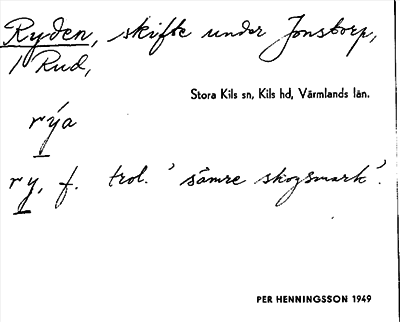 Ryden, skifte under Jonstorp,
/ Rud,
Stora Kils sn, Kils hd, Värmlands län.
rýa
ry, f. trol. 'sämre skogsmark'.
PER HENNINGSSON 1949